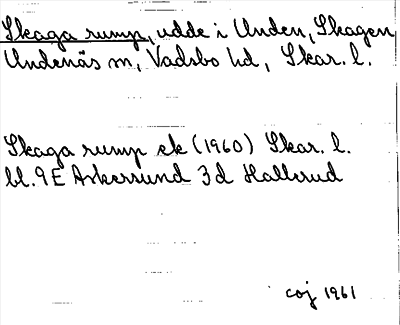 Skaga rump, udde i Unden, Skagen
Undenäs sn, Vadsbo hd, Skar. l.
Skaga rump ek (1960) Skar. l.
bl. 9E Askersund 3d Hallerud
coj 1961